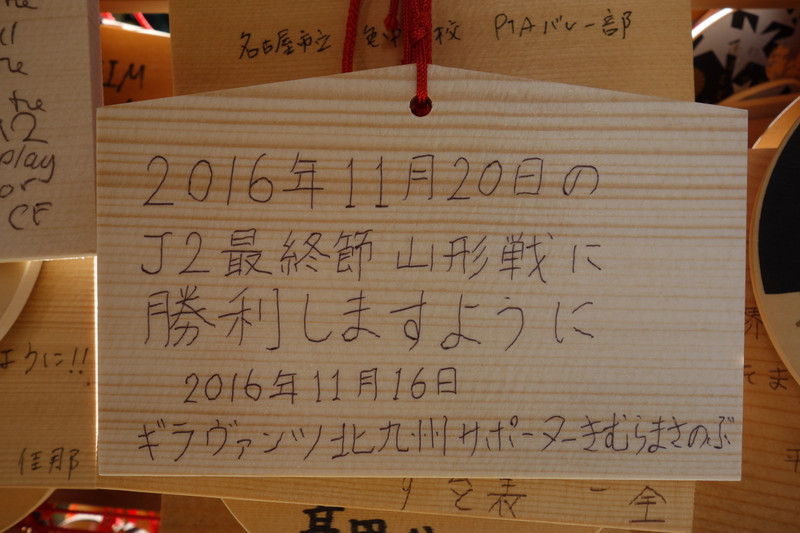 名古屋市立
PTAバレー部
2016年11月20日の
J2最終節 山形戦に
勝利しますように
2016年11月16日
ギラヴァンツ北九州サポーターきむらまさのぶ
the
play
or
CF
ように!!
佳那